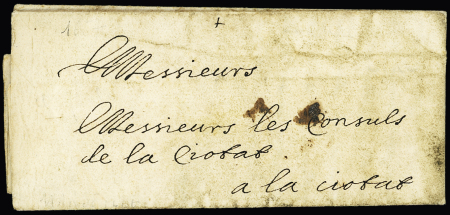 Messieurs
Messieurs les Consuls
de la Ciotat
a la ciotat